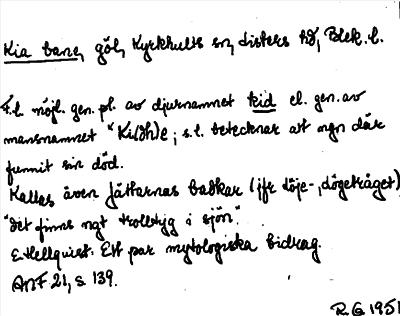 Kia bane, göl, Kyrkhults sn, Listers hd, Blek. l.
F.l. möjl. gen. pl. av djurnamnet kid el. gen. av
mansnamnet *Ki(dh)e; s.l. betecknar att ngn där
funnit sin död.
Kallas även Jättarnas badkar (jfr löje-, dögetråget)
"det finns ngt trolltyg i sjön".
E. Hellquist: Ett par mytologiska bidrag.
ANF 21, s. 139.
R G 1951